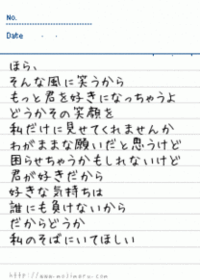 No.
Date . .
ほら、
そんな風に笑うから
もっと君を好きになっちゃうよ
どうかその笑顔を
私だけに見せてくれませんか
わがままな願いだと思うけど
困らせちゃうかもしれないけど
君が好きだから
好きな気持ちは
誰にも負けないから
だからどうか
私のそばにいてほしい
http://www.mojimaru.com